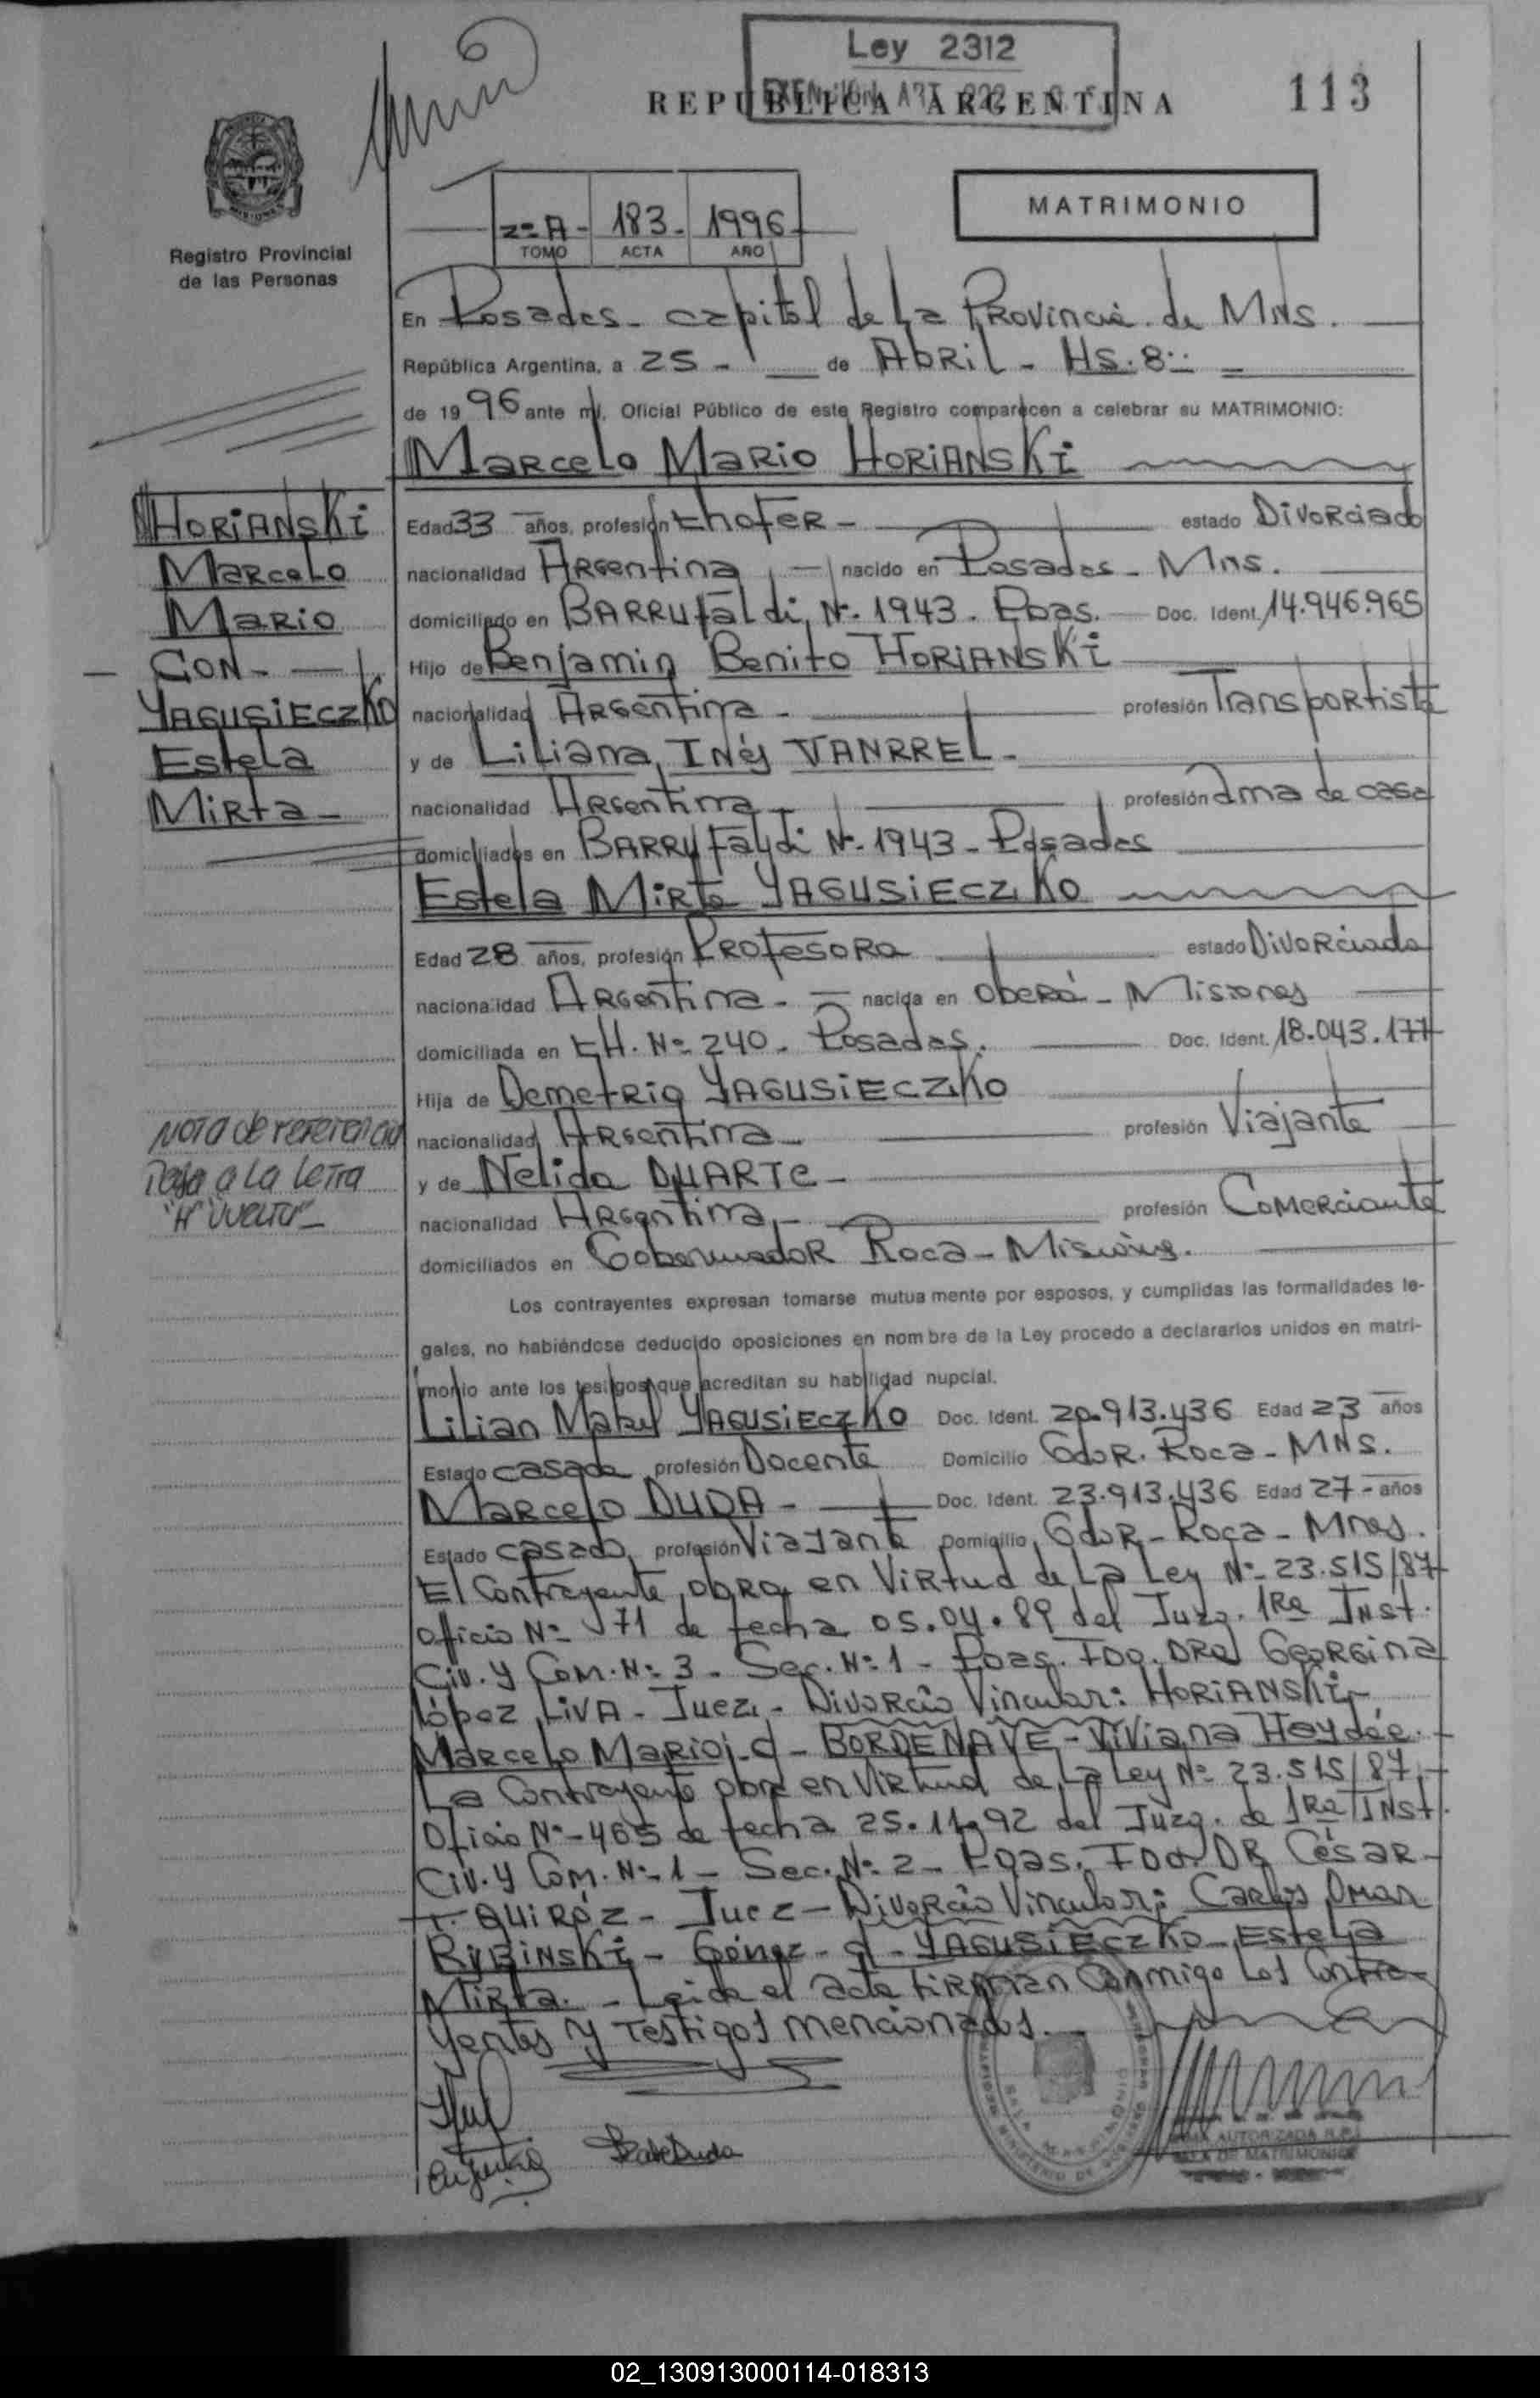 Ley 2312
REPUBLICA ARGENTINA
113
Registro Provincial
de las Personas
2º A - 183 - 1996
TOMO ACTA AÑO
MATRIMONIO
En Posadas - capital de La Provincia de MNS.
República Argentina, a 25 - de Abril - Hs. 8
de 1996 ante mi, Oficial Público de este Registro comparecen a celebrar su MATRIMONIO:
Marcelo Mario HORIANSKI
HORIANSKI
Marcelo
Mario
CON -
YAGUSIECZKO
Estela
Mirta -
Edad 33 años, profesión Chofer - estado Divorciado
nacionalidad Argentina, nacido en Posadas - Mns.
domiciliado en BARRUfaldi Nº 1943 - Pdas. Doc. Ident. 14.946.965
Hijo de Benjamin Benito HORIANSKI
nacionalidad Argentina - profesión Transportista
y de Liliana Inés VANRREL -
nacionalidad Argentina - profesión Ama de casa
domiciliados en BARRUFaldi Nº 1943 - Posadas
Estela Mirta YAGUSIECZKO
Edad 28 años, profesión Profesora estado Divorciada
nacionalidad Argentina - nacida en Oberá - Misiones
domiciliada en CH. Nº 240 - Posadas. Doc. Ident. 18.043.177
Hija de Demetrio YAGUSIECZKO
nacionalidad Argentina - profesión Viajante
y de Nelida DUARTE -
nacionalidad Argentina - profesión Comerciante
domiciliados en Gobernador Roca - Misiones.
Nota de referencia
Pasa a la Letra
"H" Vuelta -
Los contrayentes expresan tomarse mutuamente por esposos, y cumplidas las formalidades le-
gales, no habiéndose deducido oposiciones en nombre de la Ley procedo a declararlos unidos en matri-
monio ante los testigos que acreditan su habilidad nupcial.
Lilian Mabel YAGUSIECZKO Doc. Ident. 20.913.436 Edad 23 años
Estado casada profesión Docente Domicilio Gdor. Roca - MNS.
Marcelo DUDA - Doc. Ident. 23.913.436 Edad 27 - años
Estado casado, profesión Viajante Domicilio Gdor - Roca - Mnes.
El Contrayente obra en Virtud de La Ley Nº 23.515/87
Oficio Nº 71 de fecha 05.04.89 del Juzg. 1Ra Inst.
Civ. y Com. Nº 3 - Sec. Nº 1 - Pdas. FDO. DRA Georgina
López LIVA - Juez - Divorcio Vincular: HORIANSKI -
Marcelo Mario c/ - BORDENAVE - Viviana Haydée. -
La Contrayente obra en Virtud de La Ley Nº 23.515/87 -
Oficio Nº - 465 de fecha 25.11.92 del Juzg. de 1Ra Inst.
Civ. y Com. Nº 1 - Sec. Nº 2 - Pdas. FDO. DR César -
QUIRÓZ - Juez - Divorcio Vincular: Carlos Omar
RYBINSKI - Gómez - c/ - YAGUSIECZKO - Estela
Mirta. - Leida el acta firman Conmigo Los Contra-
yentes y Testigos mencionados. -
AUTORIZADA
SALA DE MATRIMONIOS
02_130913000114-018313